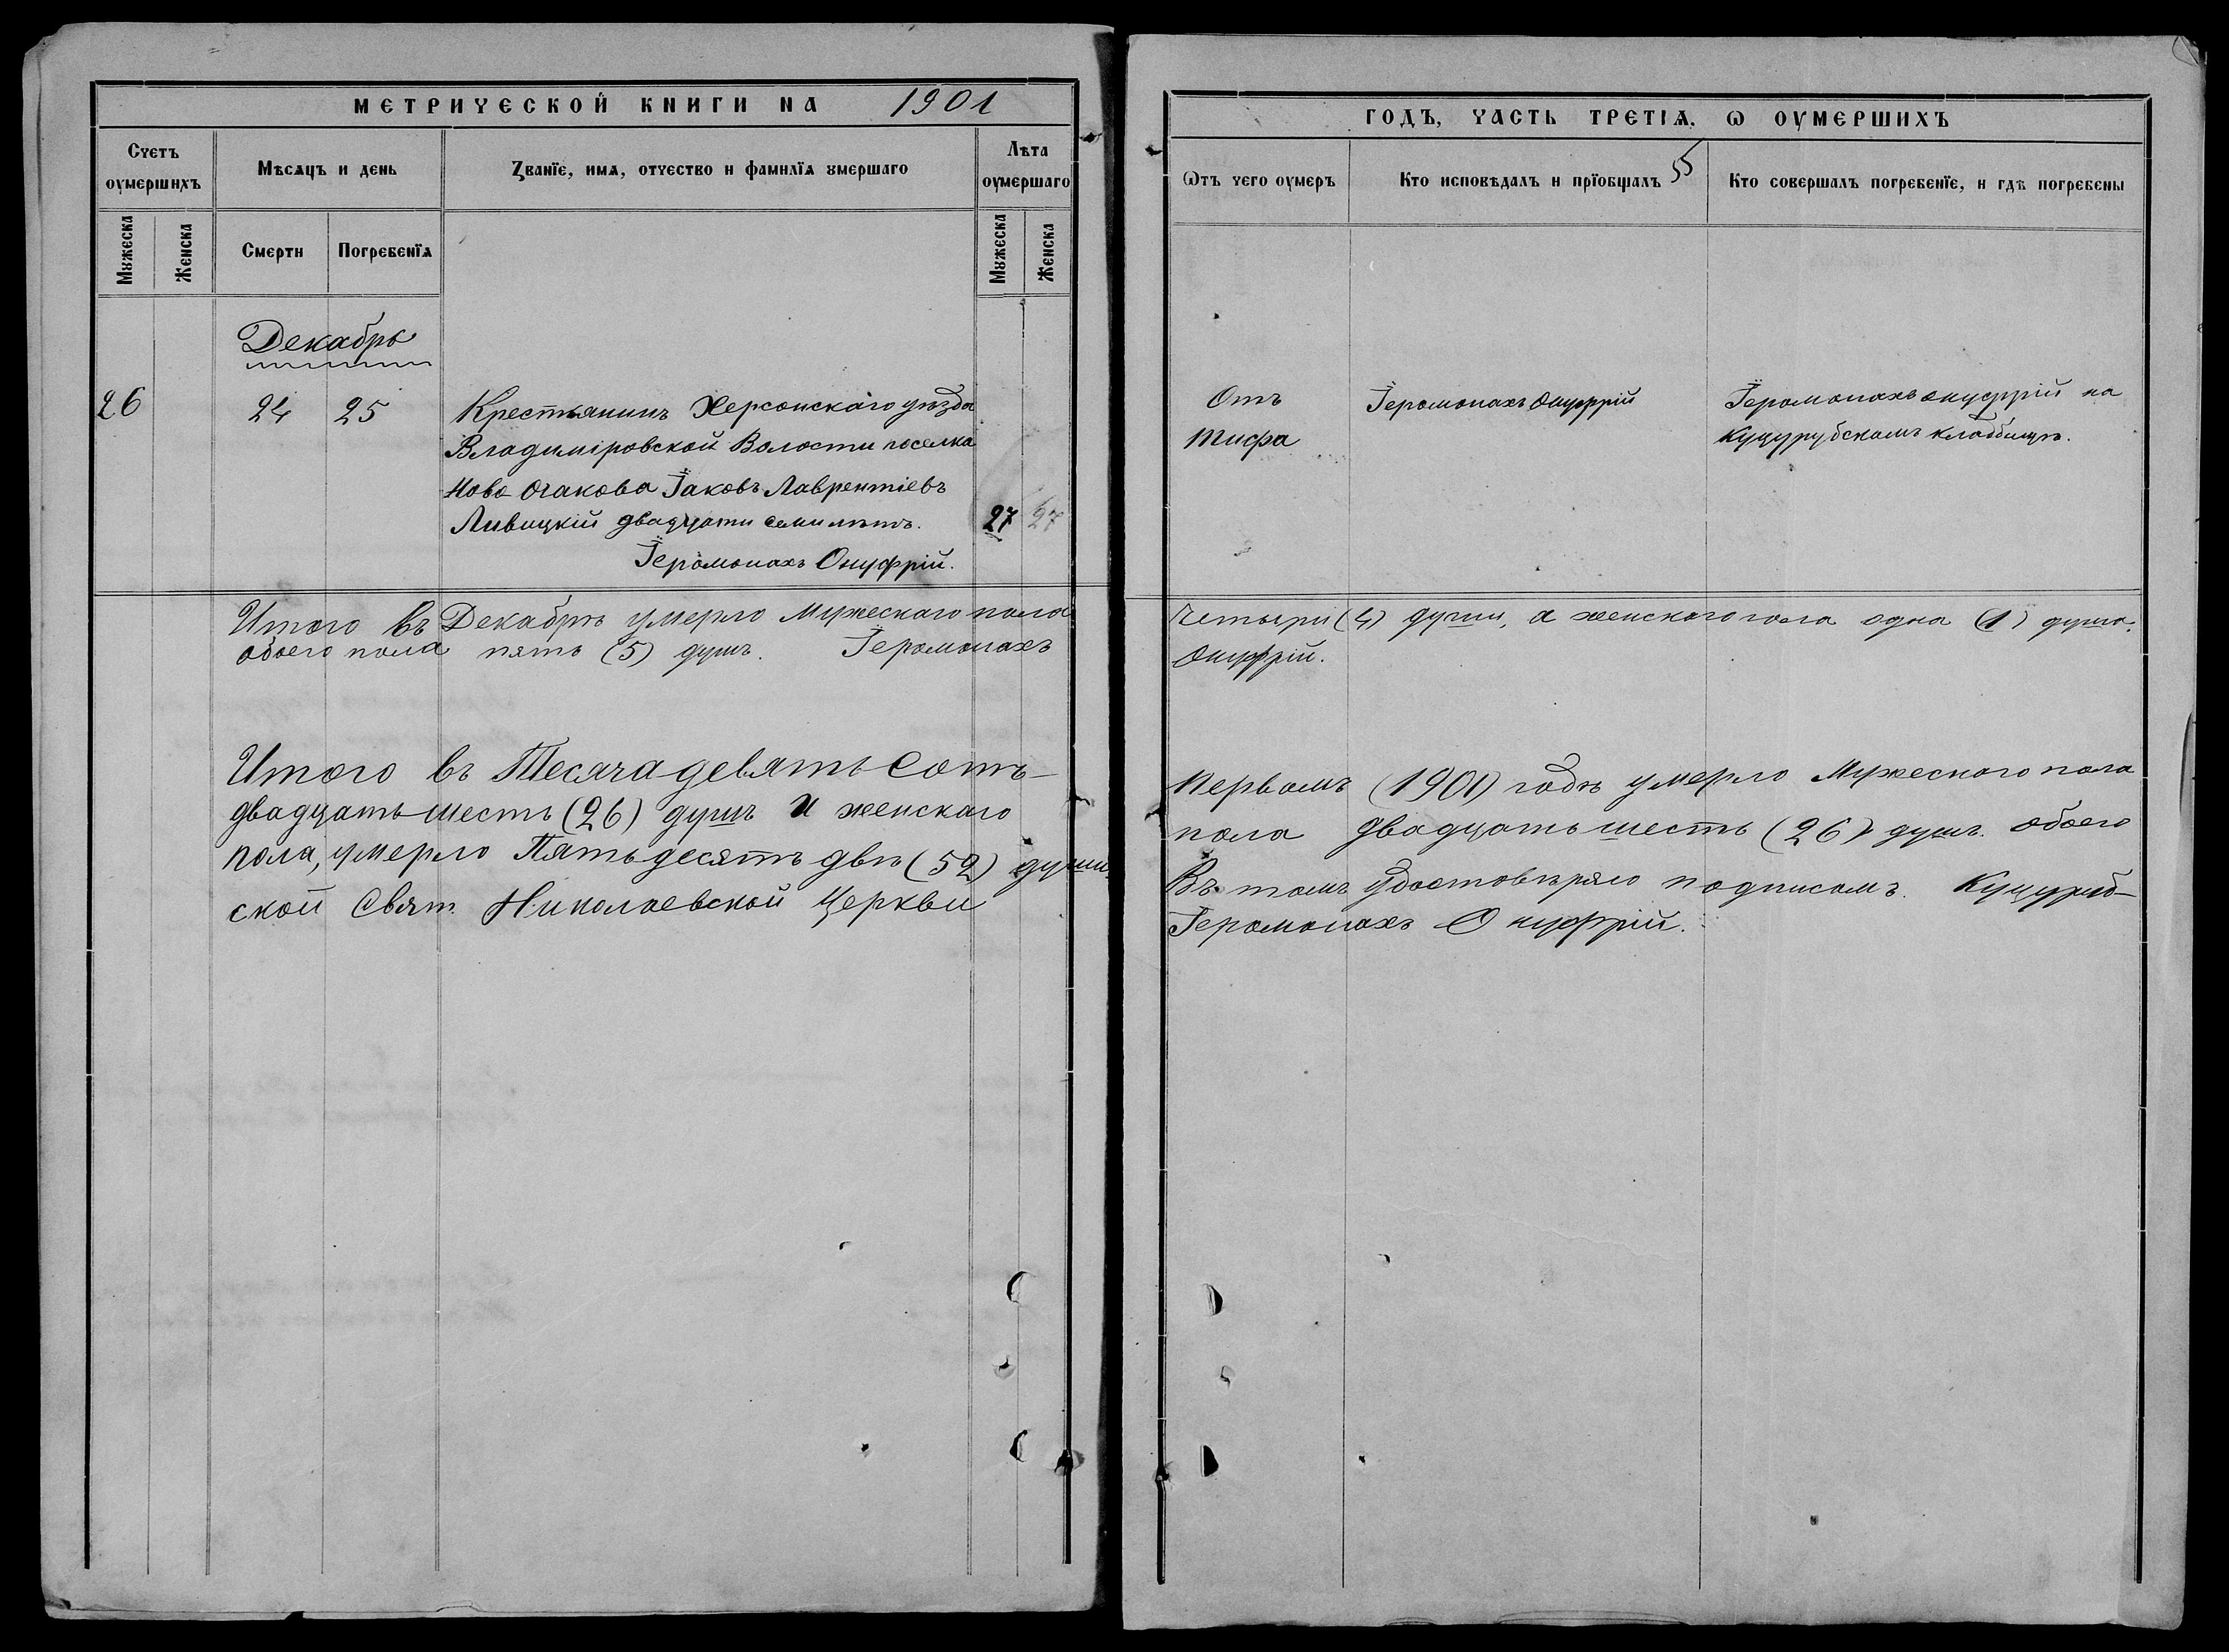 МЕТРИЧЕСКОЙ КНИГИ НА 1901
Счетъ оумершихъ
Мѣсяцъ и день
Званїе, имѧ, отчество и фамилїѧ умершаго
Лѣта оумершаго
Мужеска
Женска
Смерти
Погребенїѧ
Мужеска
Женска
Декабрь
26
24
25
Крестьянинъ Херсонскаго уѣзда
Владимiровской Волости поселка
Ново Очакова Іаковъ Лаврентіевъ
Ливицкій двадцати семи лѣтъ.
27
27
Іеромонахъ Онуфрій.
Итого въ Декабрѣ умерло мужескаго пола
обоего пола пять (5) душъ. Іеромонахъ
Итого въ Тесяча девять сотъ-
двадцать шесть (26) душъ и женскаго
пола, умерло Пятьдесятъ двѣ (52) души.
ской Свят. Николаевской Церкви
ГОДЪ, ЧАСТЬ ТРЕТІѦ, Ѡ ОУМЕРШИХЪ
55
Ѿтъ чего оумеръ
Кто исповѣдалъ и прїобщалъ
Кто совершалъ погребенїе, и гдѣ погребены
Отъ
тифа
Іеромонахъ Онуфрій
Іеромонахъ Онуфрій на
Куцурубскомъ кладбищѣ.
Четыри (4) души, а женскаго пола одна (1) душа.
Онуфрій.
Первомъ (1901) годѣ умерло Мужескаго пола
пола двадцать шесть (26) душъ. обоего
Въ томъ удостовѣряю подписомъ. Куцуруб-
Іеромонахъ Онуфрій.